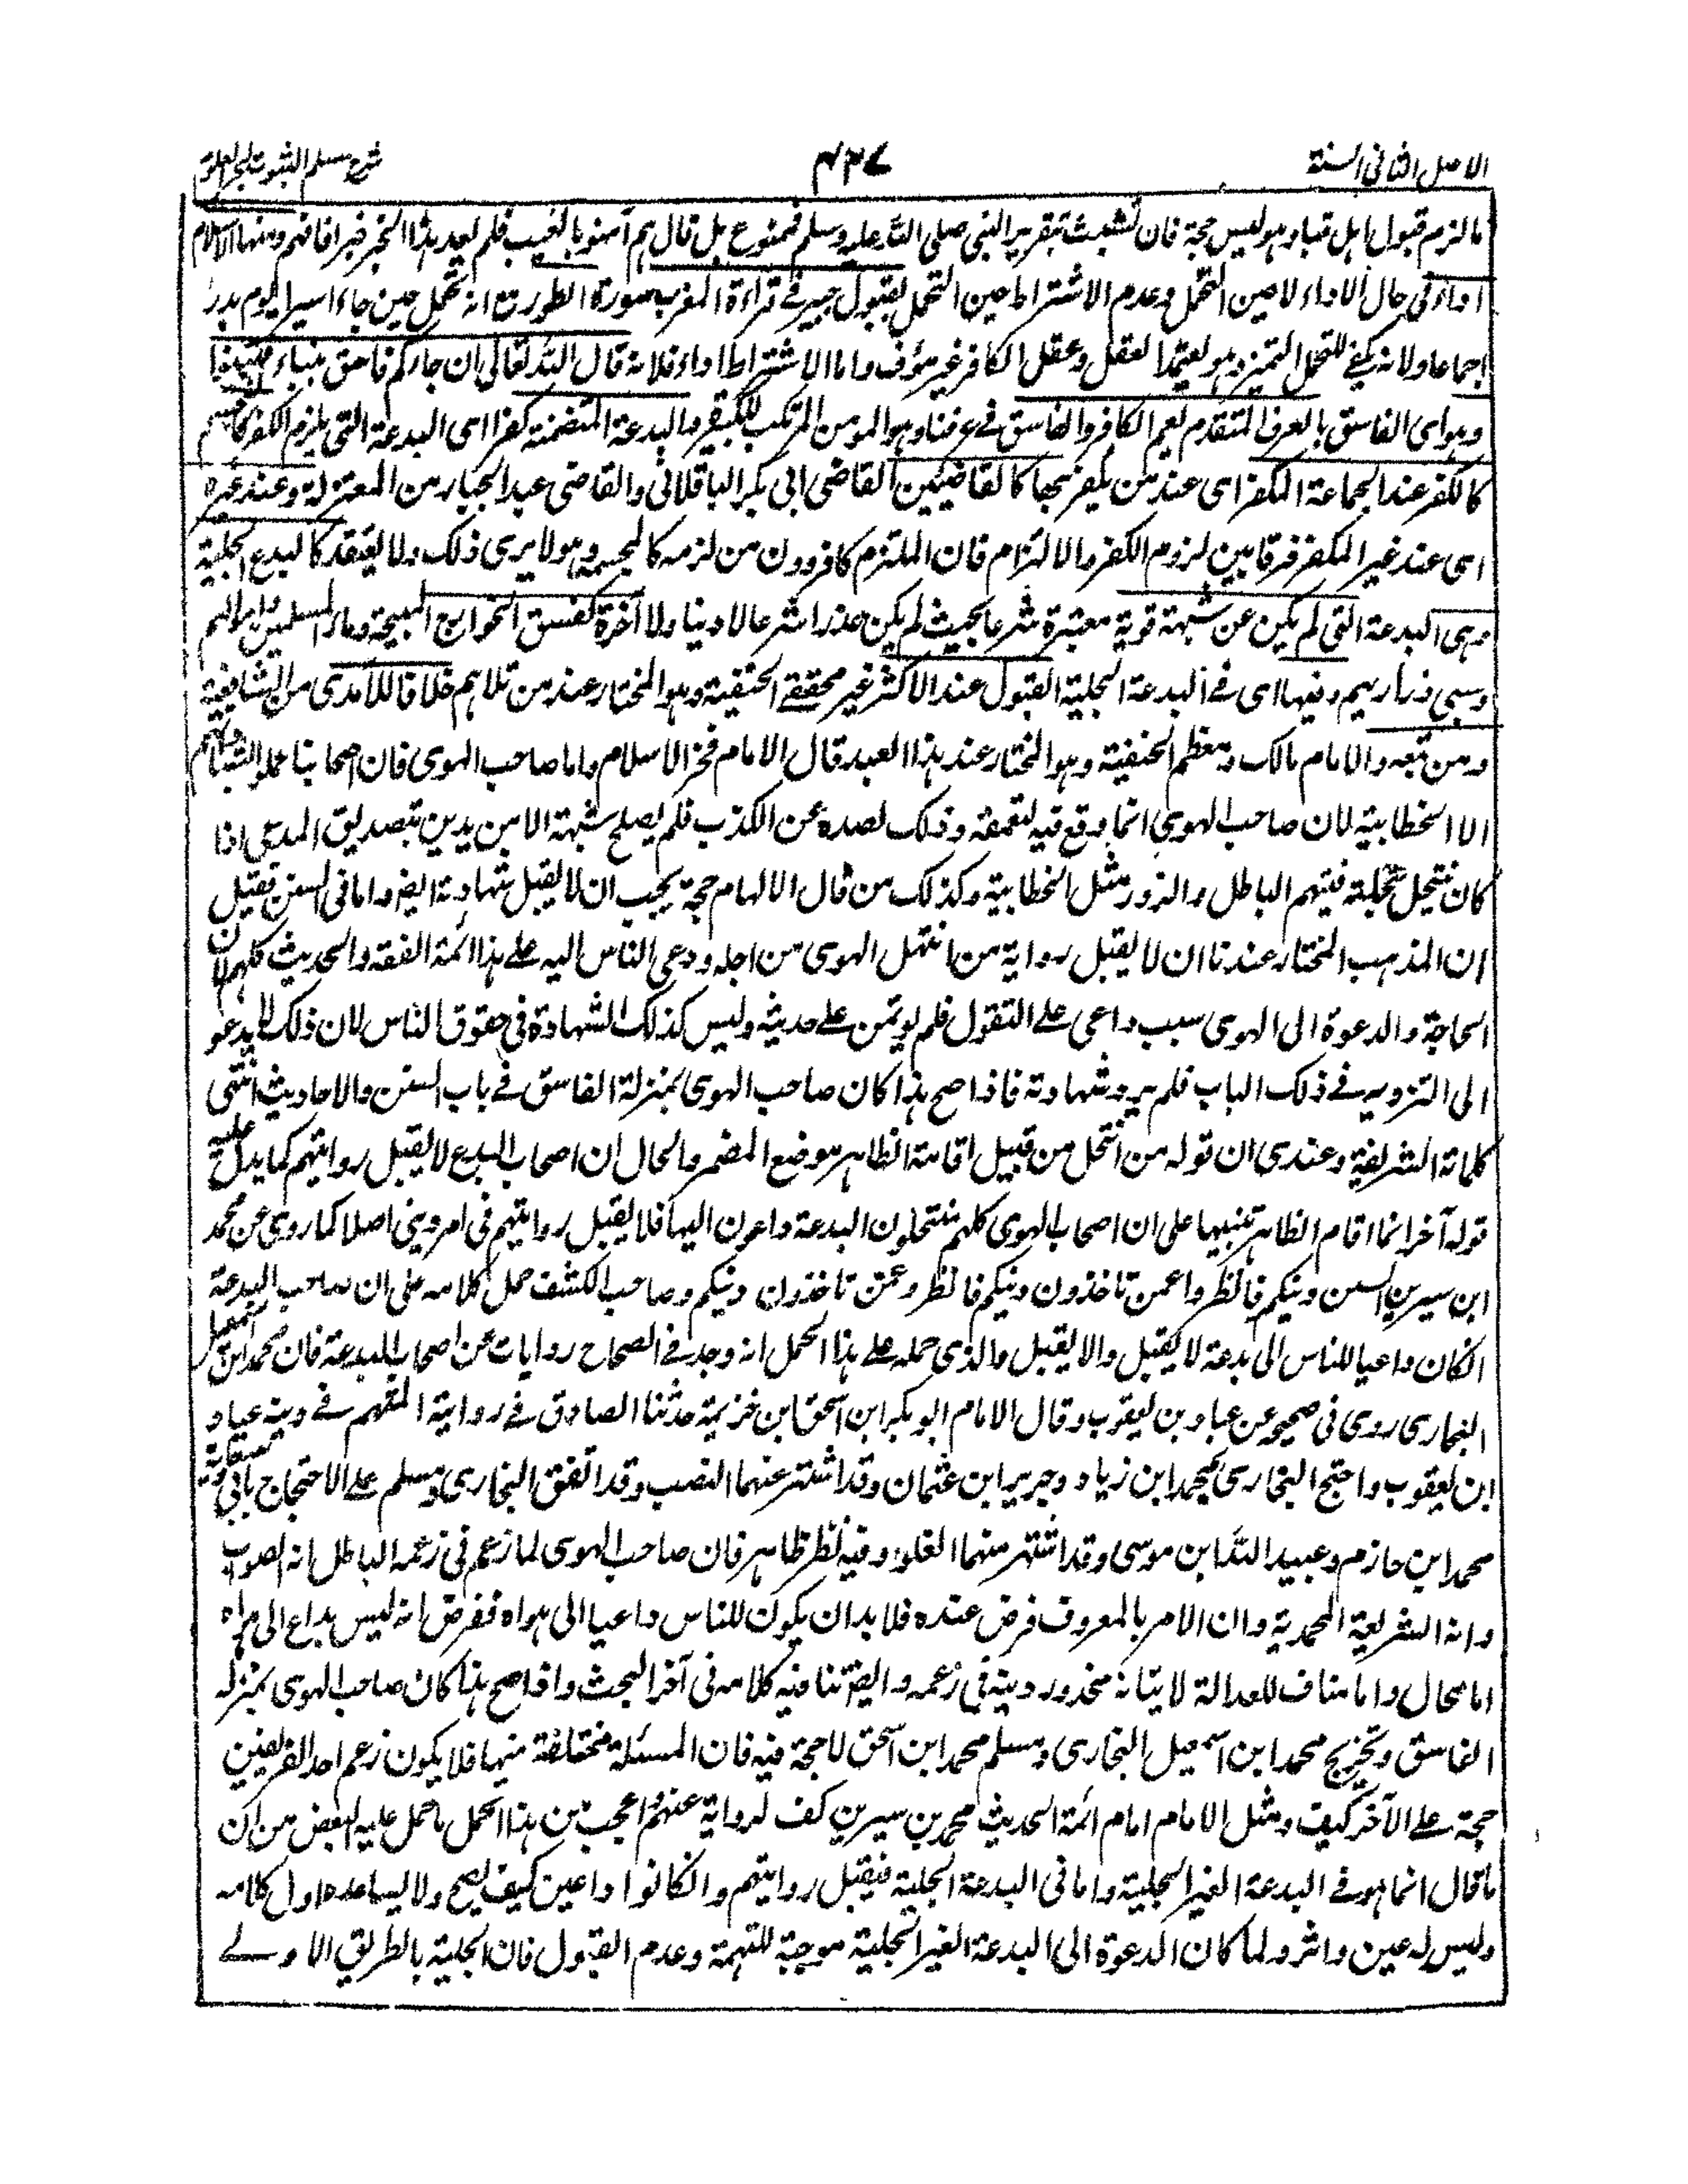 الاصل الثانی السنة ۴۳۷ شرح مسلم الثبوت لبحر العلوم
ما لزم قبول اہل قباء وہو لیس حجة فان تشبث بتقریر النبی صلی اللہ علیہ وسلم فممنوع بل قال ہم آمنوا بالغیب فلم یعد ہذا الخبر خبرا فافہم ومنہا الاسلام
اداء فی حال الاداء لا حین التحمل وعدم الاشتراط حین التحمل لقبول جبیر فے قراءة المغرب بسورة الطور مع انہ تحمل حین جاء اسیرا یوم بدر
اجماعا ولانہ یکفے للتحمل التمیز وہو یعتمد العقل وعقل الکافر غیر مؤف واما الاشتراط اداء فلانہ قال اللہ تعالی ان جاءکم فاسق بنباء فتبینوا
وہو ای الفاسق بالعرف المتقدم یعم الکافر والفاسق فے عرفنا وہو المومن المرتکب للکبیرة والبدعة المتضمنة کفرا ای البدعة التی یلزم الکفر
کالکفر عند الجماعة المکفر ای عند من یکفر بہا کالقاضیین القاضی ابی بکر الباقلانی والقاضی عبد الجبار من المعتزلة وعند غیرہ
ای عند غیر المکفر فرقا بین لزوم الکفر والالتزام فان الملتزم کافر دون من لزمہ کالمجسم وہو لا یری ذلک ولا یعتقد کالبدع الجلیة
وہی البدعة التی لم یکن عن شبہة قویة معتبرة شرعا بحیث لم یکن عذرا شرعا لا دنیا ولا آخرة کفسق الخوارج المبیحة دماء المسلمین واموالہم
وسبی ذراریہم وفیہا ای فے البدعة الجلیة القبول عند الاکثر غیر محققے الحنفیة وہو المختار عند من تلاہم خلافا للآمدی من الشافعیة
ومن تبعہ والامام مالک ومعظم الحنفیة وہو المختار عند ہذا العبد قال الامام فخر الاسلام واما صاحب الہوی فان اصحابنا عملوا بشہاداتہم
الا الخطابیة لان صاحب الہوی انما وقع فیہ لتعمقہ وذلک لصدہ عن الکذب فلم یصلح شبہة الا من یدین بتصدیق المدعی اذا
کان ینتحل بنحلتہ فیتہم الباطل والزور مثل الخطابیة وکذلک من قال الالہام حجة یجب ان لا یقبل شہادتہ ایضا واما فی السنن فقیل
ان المذہب المختار عندنا ان لا یقبل روایة من انتحل الہوی من اجلہ ودعی الناس الیہ علے ہذا ائمة الفقہ والحدیث کلہم لان
المحاجة والدعوة الی الہوی سبب داعی علے التقول فلم یوتمن علے حدیثہ ولیس کذلک الشہادة فی حقوق الناس لان ذلک لا یدعو
الی التزویر فے ذلک الباب فلم یرد شہادتہ فاذا صح ہذا کان صاحب الہوی بمنزلة الفاسق فے باب السنن والاحادیث انتہی
کلماتہ الشریفة وعندی ان قولہ من انتحل من قبیل اقامة الظاہر موضع المضمر والحال ان اصحاب البدع لا یقبل روایتہم کما یدل علیہ
قولہ آخرا انما اقام الظاہر تنبیہا علی ان اصحاب الہوی کلہم منتحلون البدعة داعون الیہا فلا یقبل روایتہم فی امر دینی اصلا کما روی عن محمد
ابن سیرین السنن دینکم فانظروا عمن تاخذون دینکم فانظروعمن تاخذون دینکم وصاحب الکشف حمل کلامہ علی ان صاحب البدعة
انکان داعیا للناس الی بدعة لا یقبل والا یقبل والذی حملہ علے ہذا الحمل انہ وجد فے الصحاح روایات عن اصحاب البدعة فان محمد ابن اسمعیل
البخاری روی فی صحیحہ عن عباد بن یعقوب وقال الامام ابو بکر ابن اسحق ابن خزیمة حدثنا الصادق فے روایة المتہم فے دینہ عباد
ابن یعقوب واحتج البخاری بمحمد ابن زیاد وجریر ابن عثمان وقد اشتہر عنہما النصب وقد اتفق البخاری ومسلم علے الاحتجاج بابی معاویة
محمد ابن حازم وعبید اللہ ابن موسی وقد اشتہر منہما الغلو وفیہ نظر ظاہر فان صاحب الہوی لما زعم فی زعمہ الباطل انہ الصواب
وانہ الشریعة المحمدیة وان الامر بالمعروف فرض عندہ فلا بد ان یکون للناس داعیا الی ہواہ ففرض انہ لیس بداع الی ہواہ
اما محال واما مناف للعدالة لاتیانہ محذور دینہ فی زعمہ والیضا فیہ کلامہ فی آخر البحث واذا صح ہذا کان صاحب الہوی بمنزلہ
الفاسق وتخریج محمد ابن اسمعیل البخاری ومسلم محمد ابن اسحق لا حجة فیہ فان المسئلة مختلفة فیہا فلا یکون زعم احد الفریقین
حجة علے الآخر کیف ومثل الامام امام ائمة الحدیث محمد بن سیرین کف لروایة عنہم واعجب من ہذا الحمل ما حمل علیہ البعض من ان
ما قال انما ہو فے البدعة الغیر الجلیة واما فی البدعة الجلیة فیقبل روایتہم وانکانوا داعین کیف یصح ولا یساعدہ اول کلامہ
ولیس لہ عین واثر ولما کان الدعوة الی البدعة الغیر الجلیة موجبة للتہمة وعدم القبول فان الجلیة بالطریق الاولے